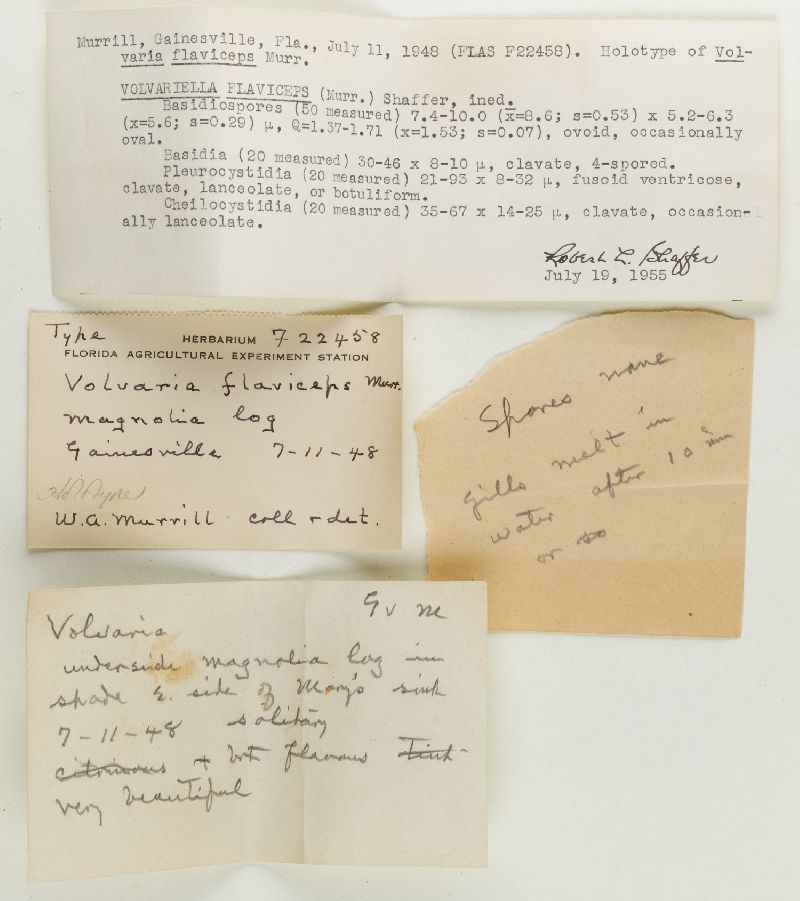 Murrill, Gainesville, Fla., July 11, 1948 (FLAS F22458). Holotype of Vol-
varia flaviceps Murr.
VOLVARIELLA FLAVICEPS (Murr.) Shaffer, ined.
Basidiospores (50 measured) 7.4-10.0 (x=8.6; s=0.53) x 5.2-6.3
(x=5.6; s=0.29) µ, Q=1.37-1.71 (x=1.53; s=0.07), ovoid, occasionally
oval.
Basidia (20 measured) 30-46 x 8-10 µ, clavate, 4-spored.
Pleurocystidia (20 measured) 21-93 x 8-32 µ, fusoid ventricose,
clavate, lanceolate, or botuliform.
Cheilocystidia (20 measured) 35-67 x 14-25 µ, clavate, occasional
ally lanceolate.
Robert L. Shaffer
July 19, 1955
Type HERBARIUM F 22458
FLORIDA AGRICULTURAL EXPERIMENT STATION
Volvaria flaviceps Murr.
magnolia log
Gainesville 7-11-48
Holotype
W.A. Murrill coll + det.
Spores none
gills melt in
water after 10 min
or so
Gv m
Volvaria
underside magnolia log in
shade E. side of Mary's sink
7-11-48 solitary
citrinous + flavous
very beautiful